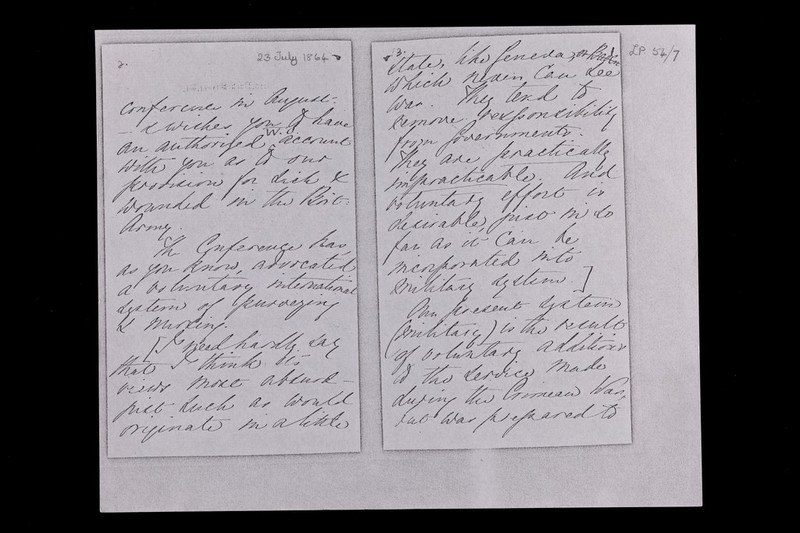 2.
23 July 1864
conference in August.
— & wishes you to have
an authorised W.O. account
with you as to our
provision for Sick &
Wounded in the Brit:
Army.
The Conference has,
as you know, advocated
a voluntary international
system of purveying
& nursing.
[I need hardly say
that I think its
views most absurd —
just such as would
originate in a little
3.
LP. 56/7
State, like Geneva,
which never can see
war. They tend to
remove responsibility
from governments.
They are practically
impracticable. And
voluntary effort is
desirable, just in so
far as it can be
incorporated into
military system.]
Our present system
(military) is the result
of voluntary additions
to the service made
during the Crimean War,
but was prepared to